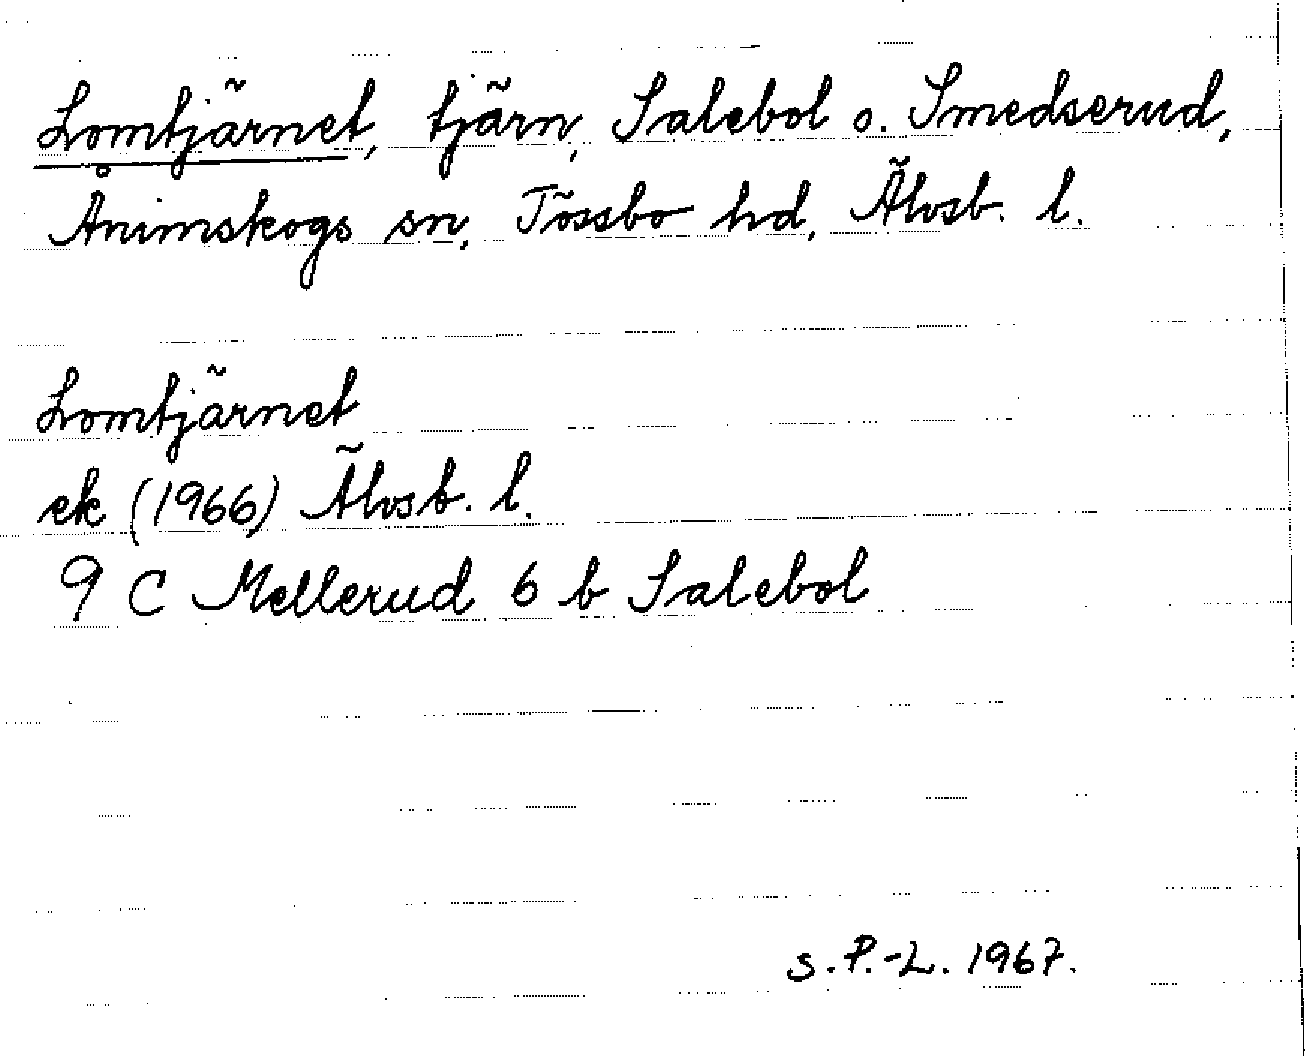 Lomtjärnet, tjärn, Salebol o. Smedserud,
Ånimskogs sn, Tössbo hd, Älvsb. l.
Lomtjärnet
ek (1966) Älvsb. l.
9 C Mellerud 6 b Salebol
S.P.-L. 1967.